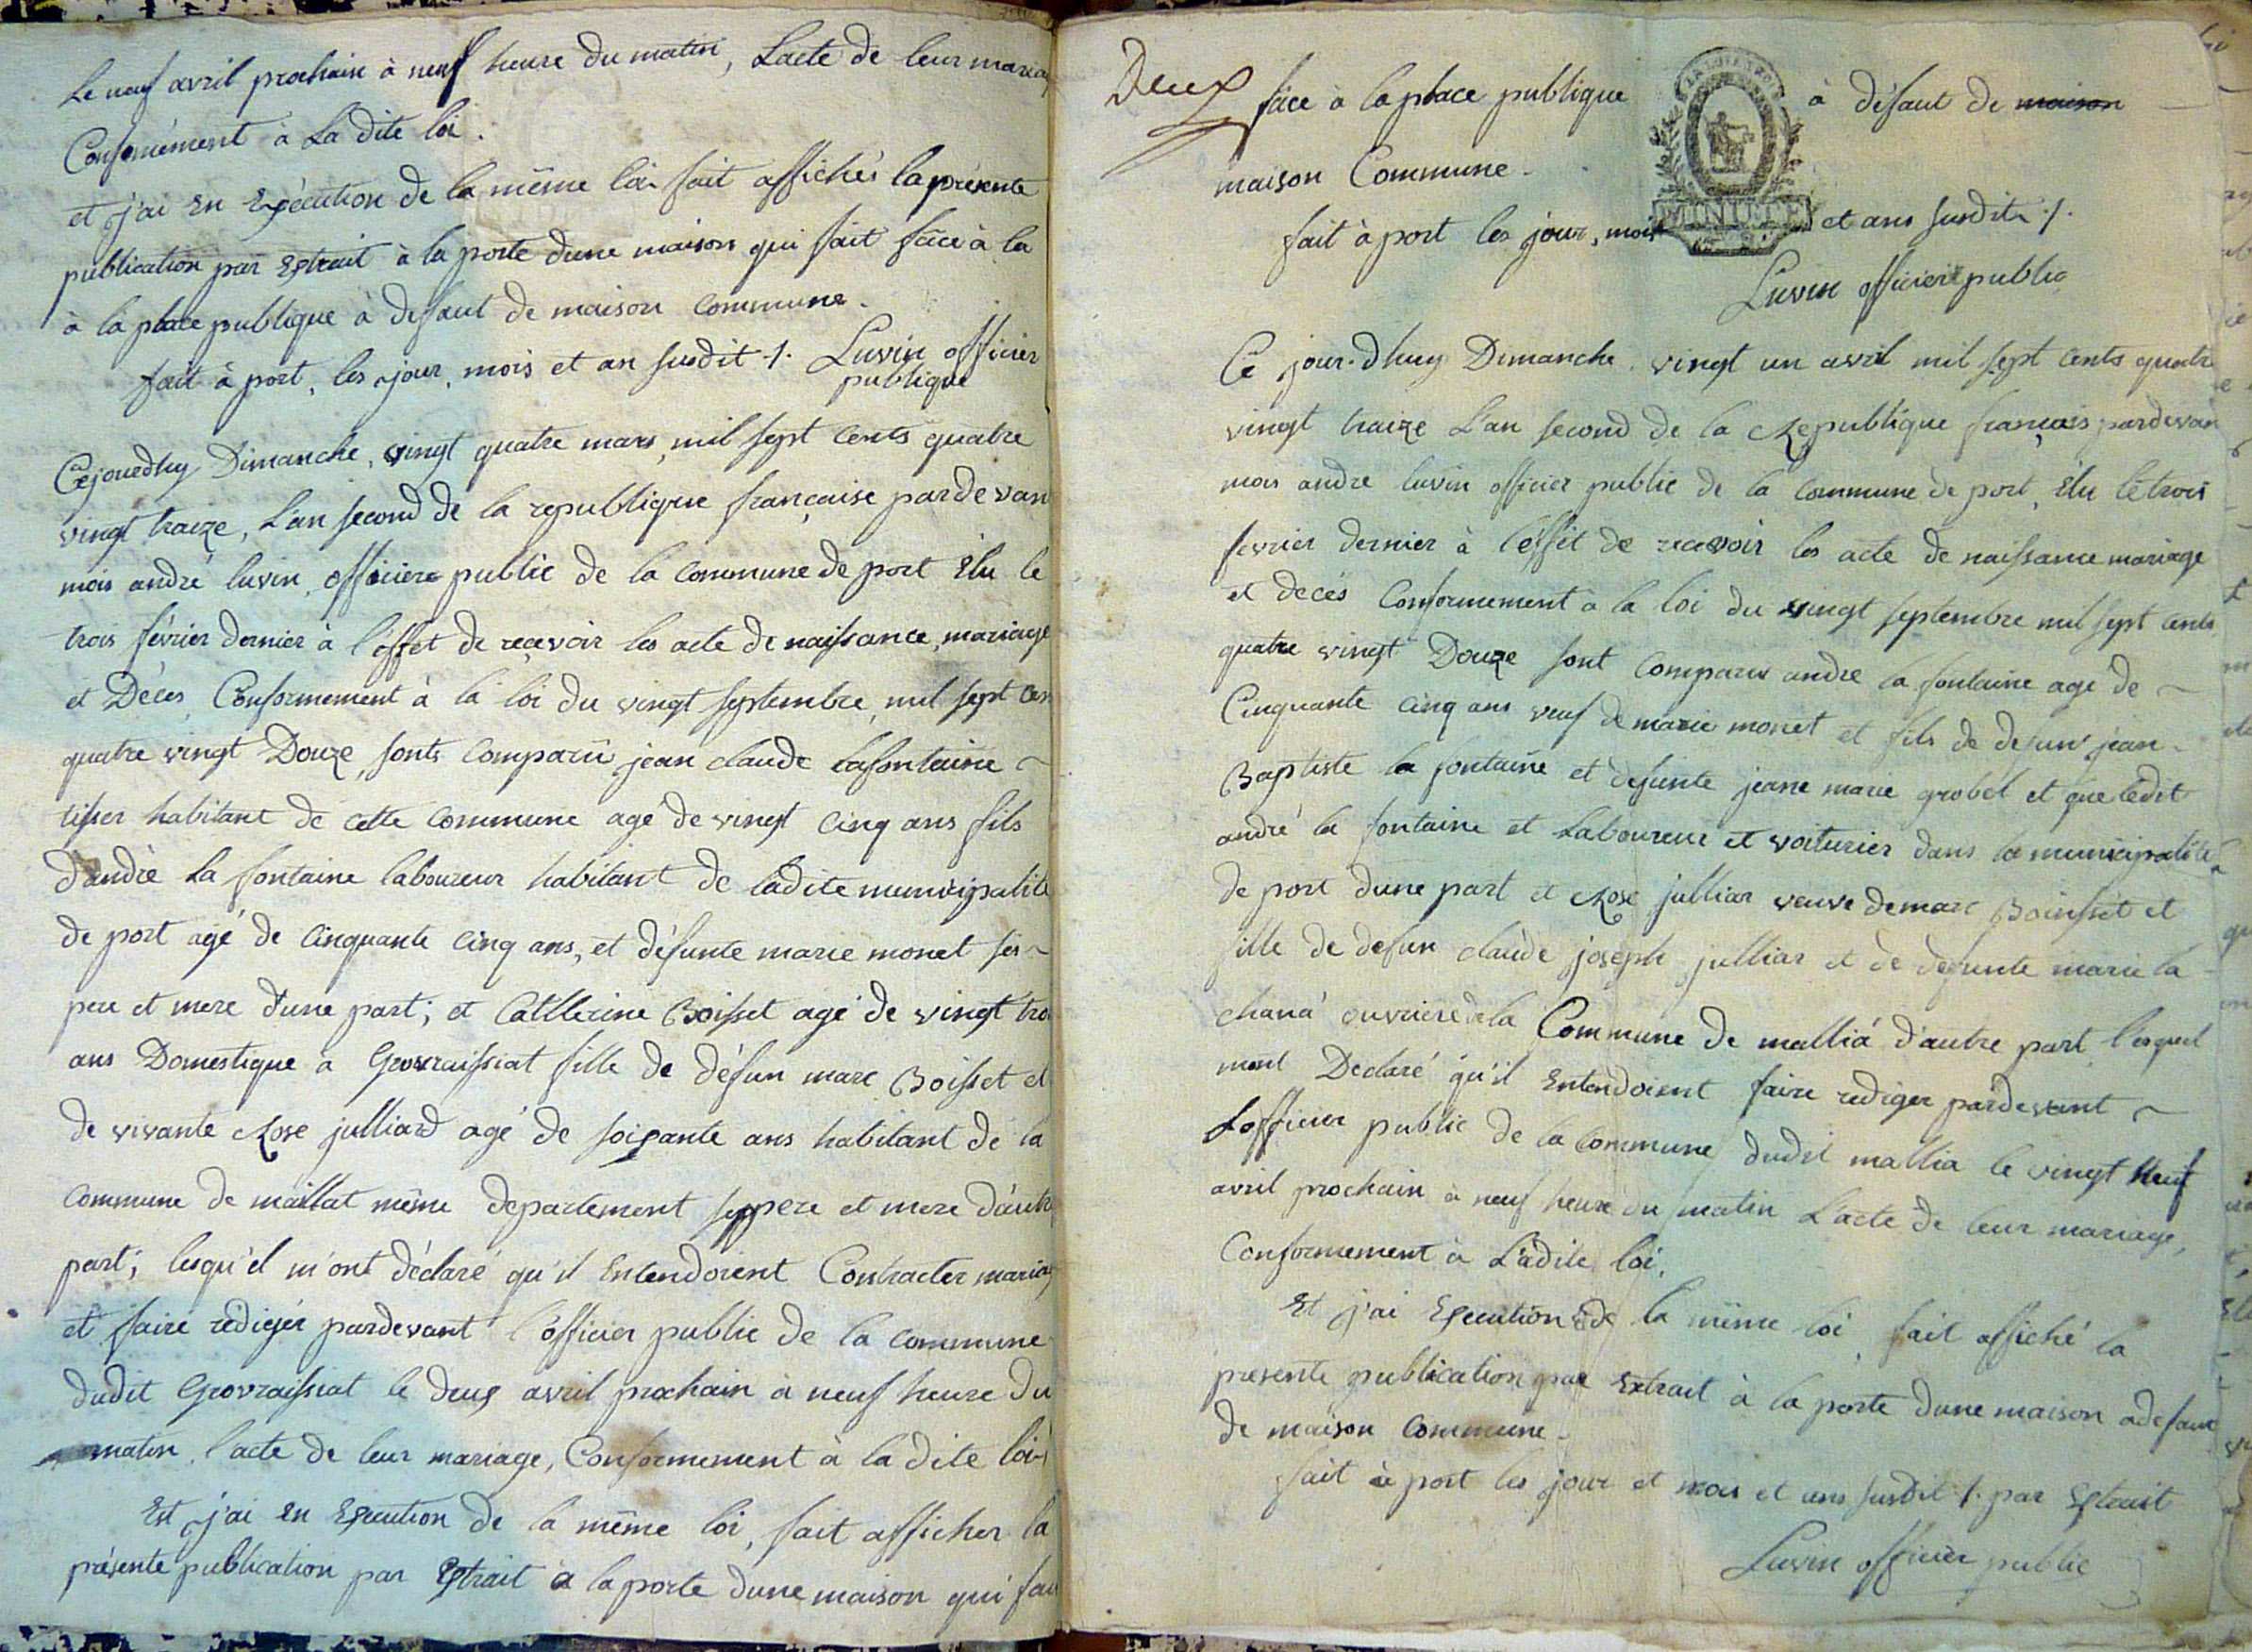 Le neuf avril prochain à neuf heure du matin, Lacte de leur maria
Conformément à La dite loi.
et j'ai En Exécution de la même loi fait affichés la présente
publication par Extrait à la porte dune maison qui fait fâce à la
à la place publique à defaut de maison commune.
fait à port, les jour, mois et an susdit ./. Luvin officier
publique
Cejourdhuy Dimanche, vingt quatre mars, mil sept cents quatre
vingt traize, L'an second de la republique française pardevan
mois andré luvin, officiere public de la commune de port Elu le
trois février dernier à l'effet de reçevoir les acte de naissance, mariage
et Déces, Conformement à la loi du vingt septembre, mil sept cen
quatre vingt Douze, sonts comparû jean claude lafontaine ~
tisser habitant de cette commune agé de vingt cinq ans fils
d'andrè La fontaine laboureur habitant de ladite municipalité
de port agé de cinquante cinq ans, et défunte marie monet ses ~
pere et mere d'une part; et Catherine Boisset agé de vingt tro
ans Domestique a Grovraissiat fille de défun marc Boisset et
de vivante Rose julliard agé de soixante ans habitant de la
commune de maillat même departement ses pere et mere d'autre
part; lesqu'el m'ont déclaré qu'il Entendoient Contracter mariag
et faire rédigér pardevant l'officier public de la commune
dudit Grovraissiat le deux avril prochain à neuf heure du
matin, l'acte de leur mariage, Conformement à la dite loi
Et j'ai en Execution de la même loi, fait afficher la
présente publication par Extrait a la porte dune maison qui fai
Deux
fâce à la place publique à défaut de maison
maison Commune.
MINUTE
fait à port les jour, mois et ans susdits ./.
Luvin officier public
Ce jour-dhuy Dimanche vingt un avril mil sept cents quatre
vingt traize L'an second de la Republique français pardevan
mois andre luvin officier public de la commune de port, Elu le trois
fevrier dernier à l'effet de recevoir les acte de naissance mariage
et decés Conformement à la loi du vingt septembre mil sept cents
quatre vingt Douze sont comparus andre la fontaine agé de ~
Cinquante cinq ans veuf de marie monet et fils de defunt jean
Baptiste la fontaine et defunte jeane marie grobel et que ledit
andré la fontaine et Laboureur et voiturier dans la municipalité
de port dune part et Rose julliar veuve de marc Boinsset et
fille de defun claude joseph julliar et de defunte marie la
chana ouvriere de la Commune de mallia d'autre part lesquel
mont Declaré qu'il Entendoient faire rediger pardevant ~
Lofficier public de la commune dudit mallia le vingt neuf
avril prochain à neuf heure du matin L'acte de leur mariage,
Conformement à Ladite loi.
Et j'ai Execution de la même loi fait affiché la
presente publication par Extrait à la porte dune maison adefaut
de maison commune.
fait à port les jour et mois et ans susdit ./. par Extrait
Luvin officier public